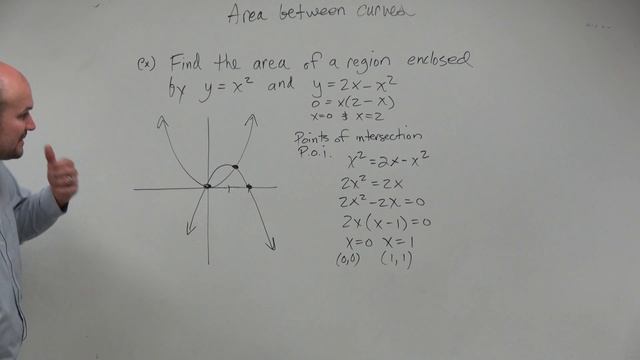 Area between curves
ex) Find the area of a region enclosed
by y = x² and y = 2x - x²
0 = x(2 - x)
x=0 & x=2
Points of intersection
P.o.i.
x² = 2x - x²
2x² = 2x
2x² - 2x = 0
2x(x - 1) = 0
x=0 x=1
(0,0) (1,1)